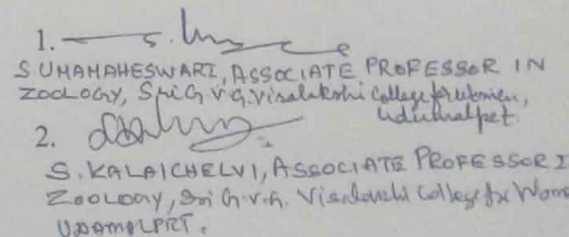 1.
S UMAMAHESWARI, ASSOCIATE PROFESSOR IN
ZOOLOGY, Sri G V G. Visalakshi College for Women,
Udumalpet
2.
S. KALAICHELVI, ASSOCIATE PROFESSOR I
ZOOLOGY, Sri G.V.G. Visalakshi College for Wome
UDAMALPRT.